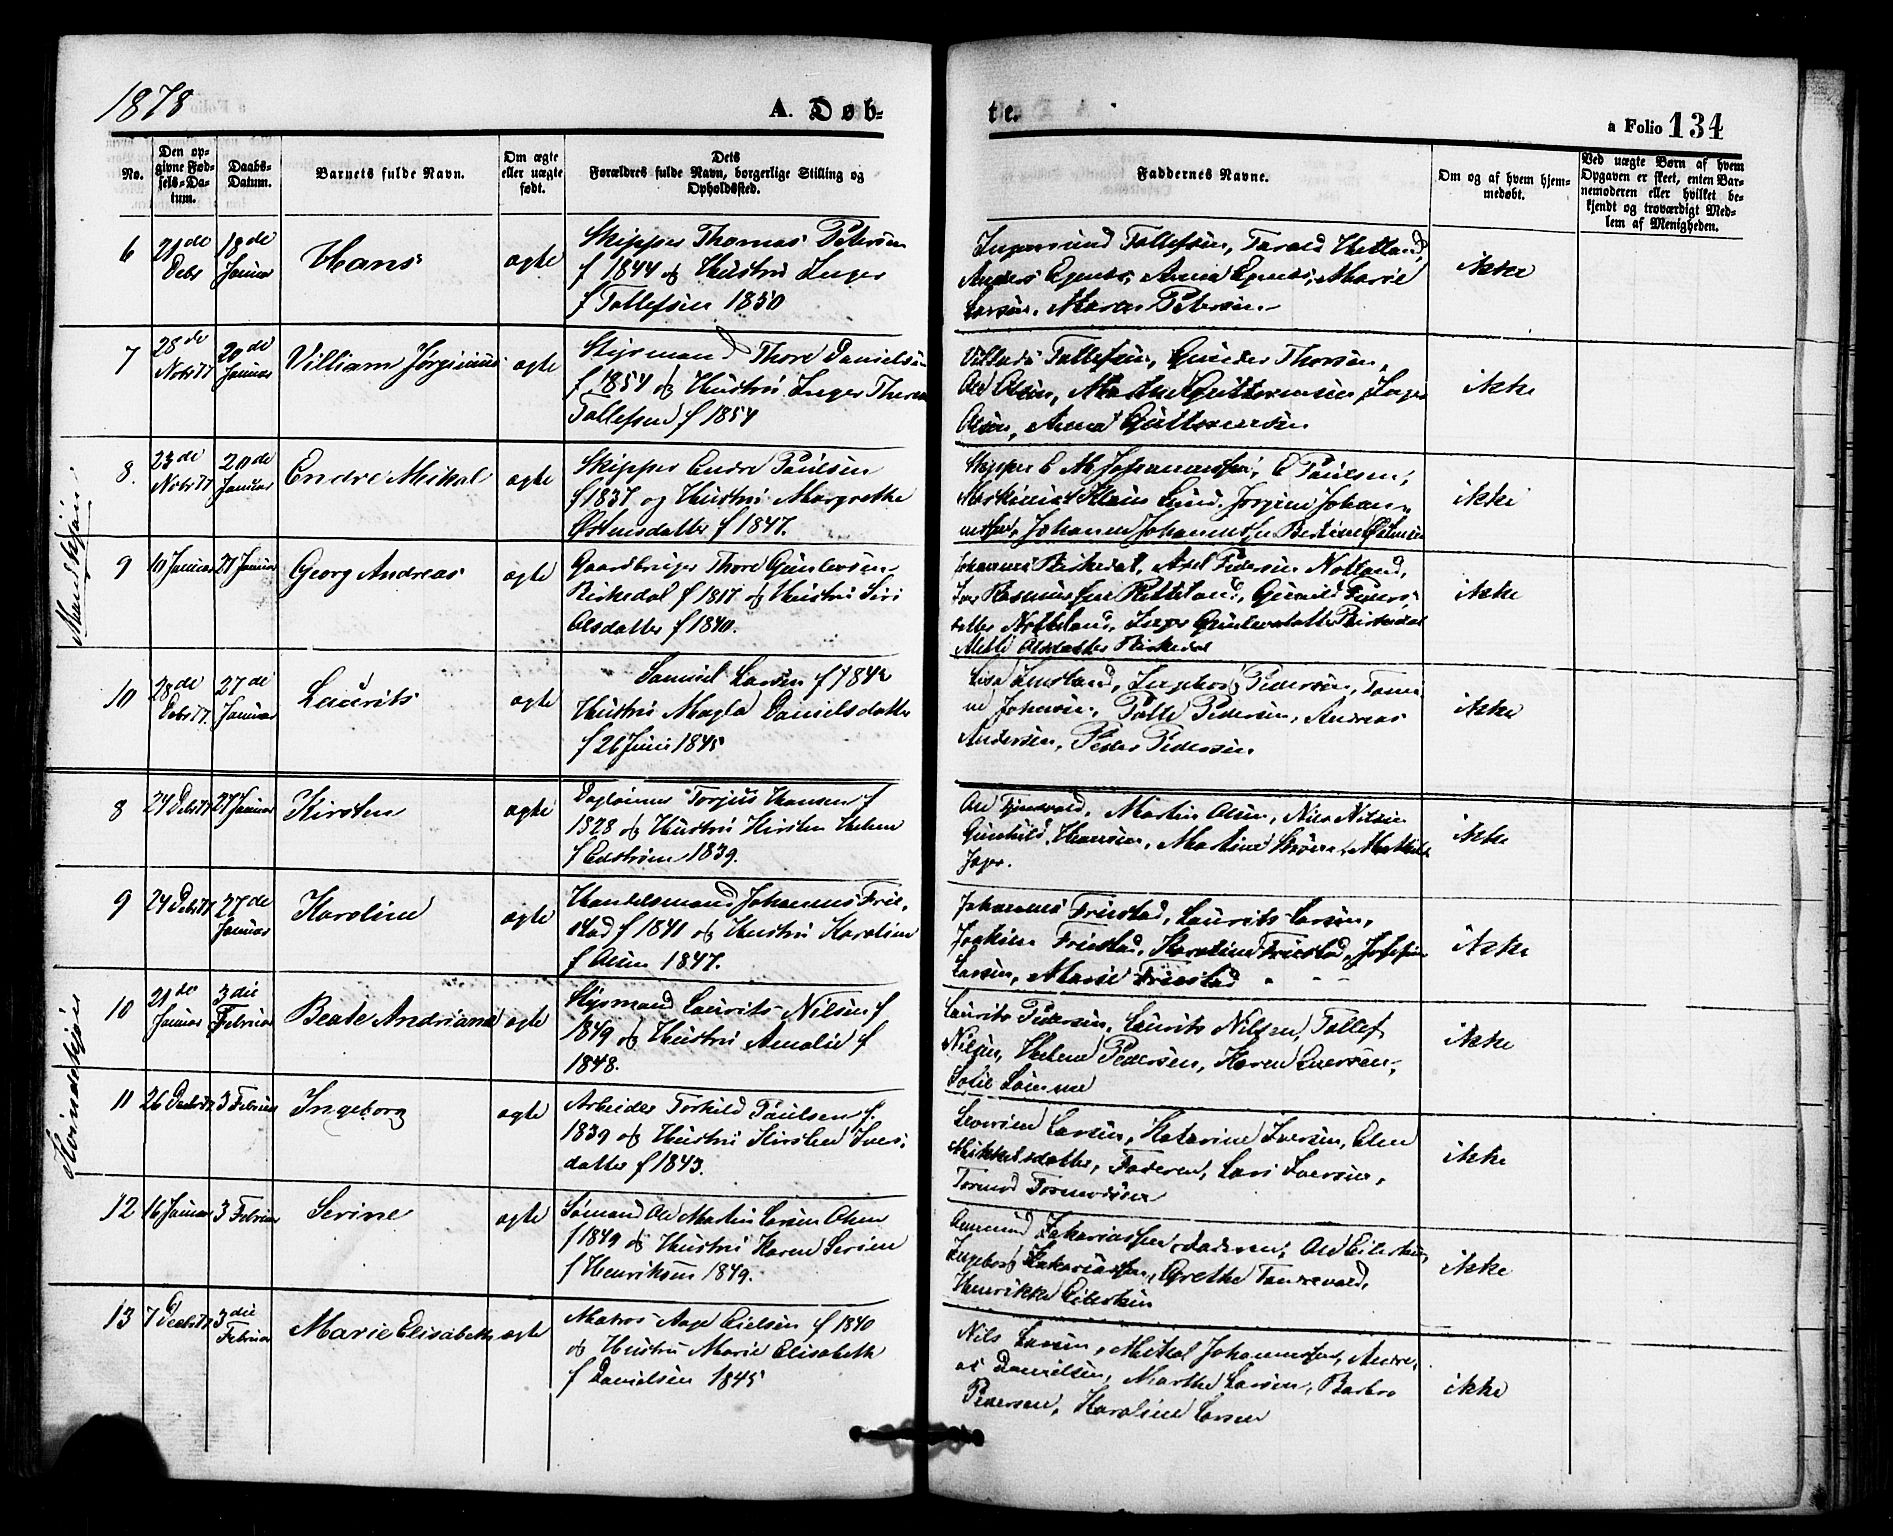 1878
A. Døb-
te.
a Folio 134
No.
Den op-
givne Fød-
sels-Da-
tum.
Daabs-
Datum.
Barnets fulde Navn.
Om ægte
eller uægte
født.
Dets
Forældres fulde Navn, borgerlige Stilling og
Opholdssted.
Faddernes Navne.
Om og af hvem hjem-
medøbt.
Ved uægte Børn af hvem
Opgaven er skeet, enten Bar-
nemoderen eller hvilket be-
kjendt og troværdigt Med-
lem af Menigheden.
Mandkjön
6
21de
Decbr
18de
Januar
Hans
ægte
Skipper Thomas Petersen
f 1844 og Hustru Inger
f Tollefsen 1850
Ingemund Tollefsen, Tarald Hetland,
Anders Egenes, Anna Egenes, Marie
Larsen, Maren Petersen
ikke
7
28de
Novbr 77
20de
Januar
Villiam Jørginius
ægte
Styrmand Thore Danielsen
f 1854 og Hustru Inger
Tollefsen f 1854
Tollefsen, Thorsen,
Ole Olsen, Guttormsen, Inger
Olsen, Anna Guttormsen
ikke
8.
23de
Novbr 77
20de
Januar
Endre Mikal
ægte
Skipper Endre Paulsen
f 1837 og Hustru Margrethe
f 1847.
Skipper E M Johannessen, E Paulsen,
Klaus Lund, Jørgine Johan-
nessen, Johanne Johannessen
ikke
9
10 Januar
27 Januar
Georg Andreas
ægte
Gaardbruger Thore Gunlevsen
Birkedal f 1817 og Hustru Siri
Olsdatter f 1840.
Johannes Birkedal, Axel Pedersen Nolland,
Rasmussen, Gunild Peders-
datter, Inger Gunlevsdatter Birkedal
Mette Olsdatter Birkedal
ikke
10
28de
Decbr 77.
27de
Januar
Laurits
ægte
Samuel Larsen f 1842
Hustru Magla Danielsdatter
f 26 Juni 1845
Ingeborg Pedersen,
Johnsen, Pedersen, Andreas
Andersen, Peder Pedersen
ikke
Kvindekjön
8
24 Decbr 77
27 Januar
Kirsten
ægte
Dagleiner Torjus Hansen f
1828 og Hustru Kirsten Helene
f Enstrøm 1839.
Ole Martin Olsen, Nils Nilsen
Gunhild Hansen, Martine
ikke
9
24 Decbr 77
27de
Januar
Karoline
ægte
Handelsmand Johannes Frie-
stad f 1841 og Hustru Karoline
f Olsen 1847.
Johannes Friestad, Laurits Larsen,
Joakim Friestad, Karoline Friestad, Josefine
Larsen, Marie Friestad
ikke
10
21de
Januar
3die
Februar
Beate Andriane
ægte
Styrmand Laurits Nilsen f
1849 og Hustru Amalie f
1848.
Laurits Pedersen, Laurits Nilsen, Tollef
Nilsen, Helene Pedersen, Karen Iversen,
Sofie Lomme
ikke
11
26 Decbr 77
3 Februar
Ingeborg
ægte
Arbeider Torkild Paulsen f.
1839 og Hustru Kirsten Ivers-
datter f 1843.
Severine Larsen, Katarine Iversen, Elen
Mikkelsdatter, Faderen, Lars Iversen,
Tormod Tormodsen
ikke
12
16 Januar
3 Februar
Serine
ægte
Sømand Ole Martin Larsen
f 1849 og Hustru Karen Serine
f Henriksen 1849.
Zakariassen, Faderen, Ole Eilertsen,
Ingeborg Zakariassen, Grethe Tangevald,
Henrikke Eilertsen
ikke
13
7 Decbr 77
3die
Februar
Marie Elisabeth
ægte
Matros Aage Eielsen f 1840
og Hustru Marie Elisabeth
f Danielsen 1845
Nils Larsen, Mikal Johannessen, Andre-
as Danielsen, Marthe Larsen, Barbro
Pedersen, Karoline Larsen
ikke